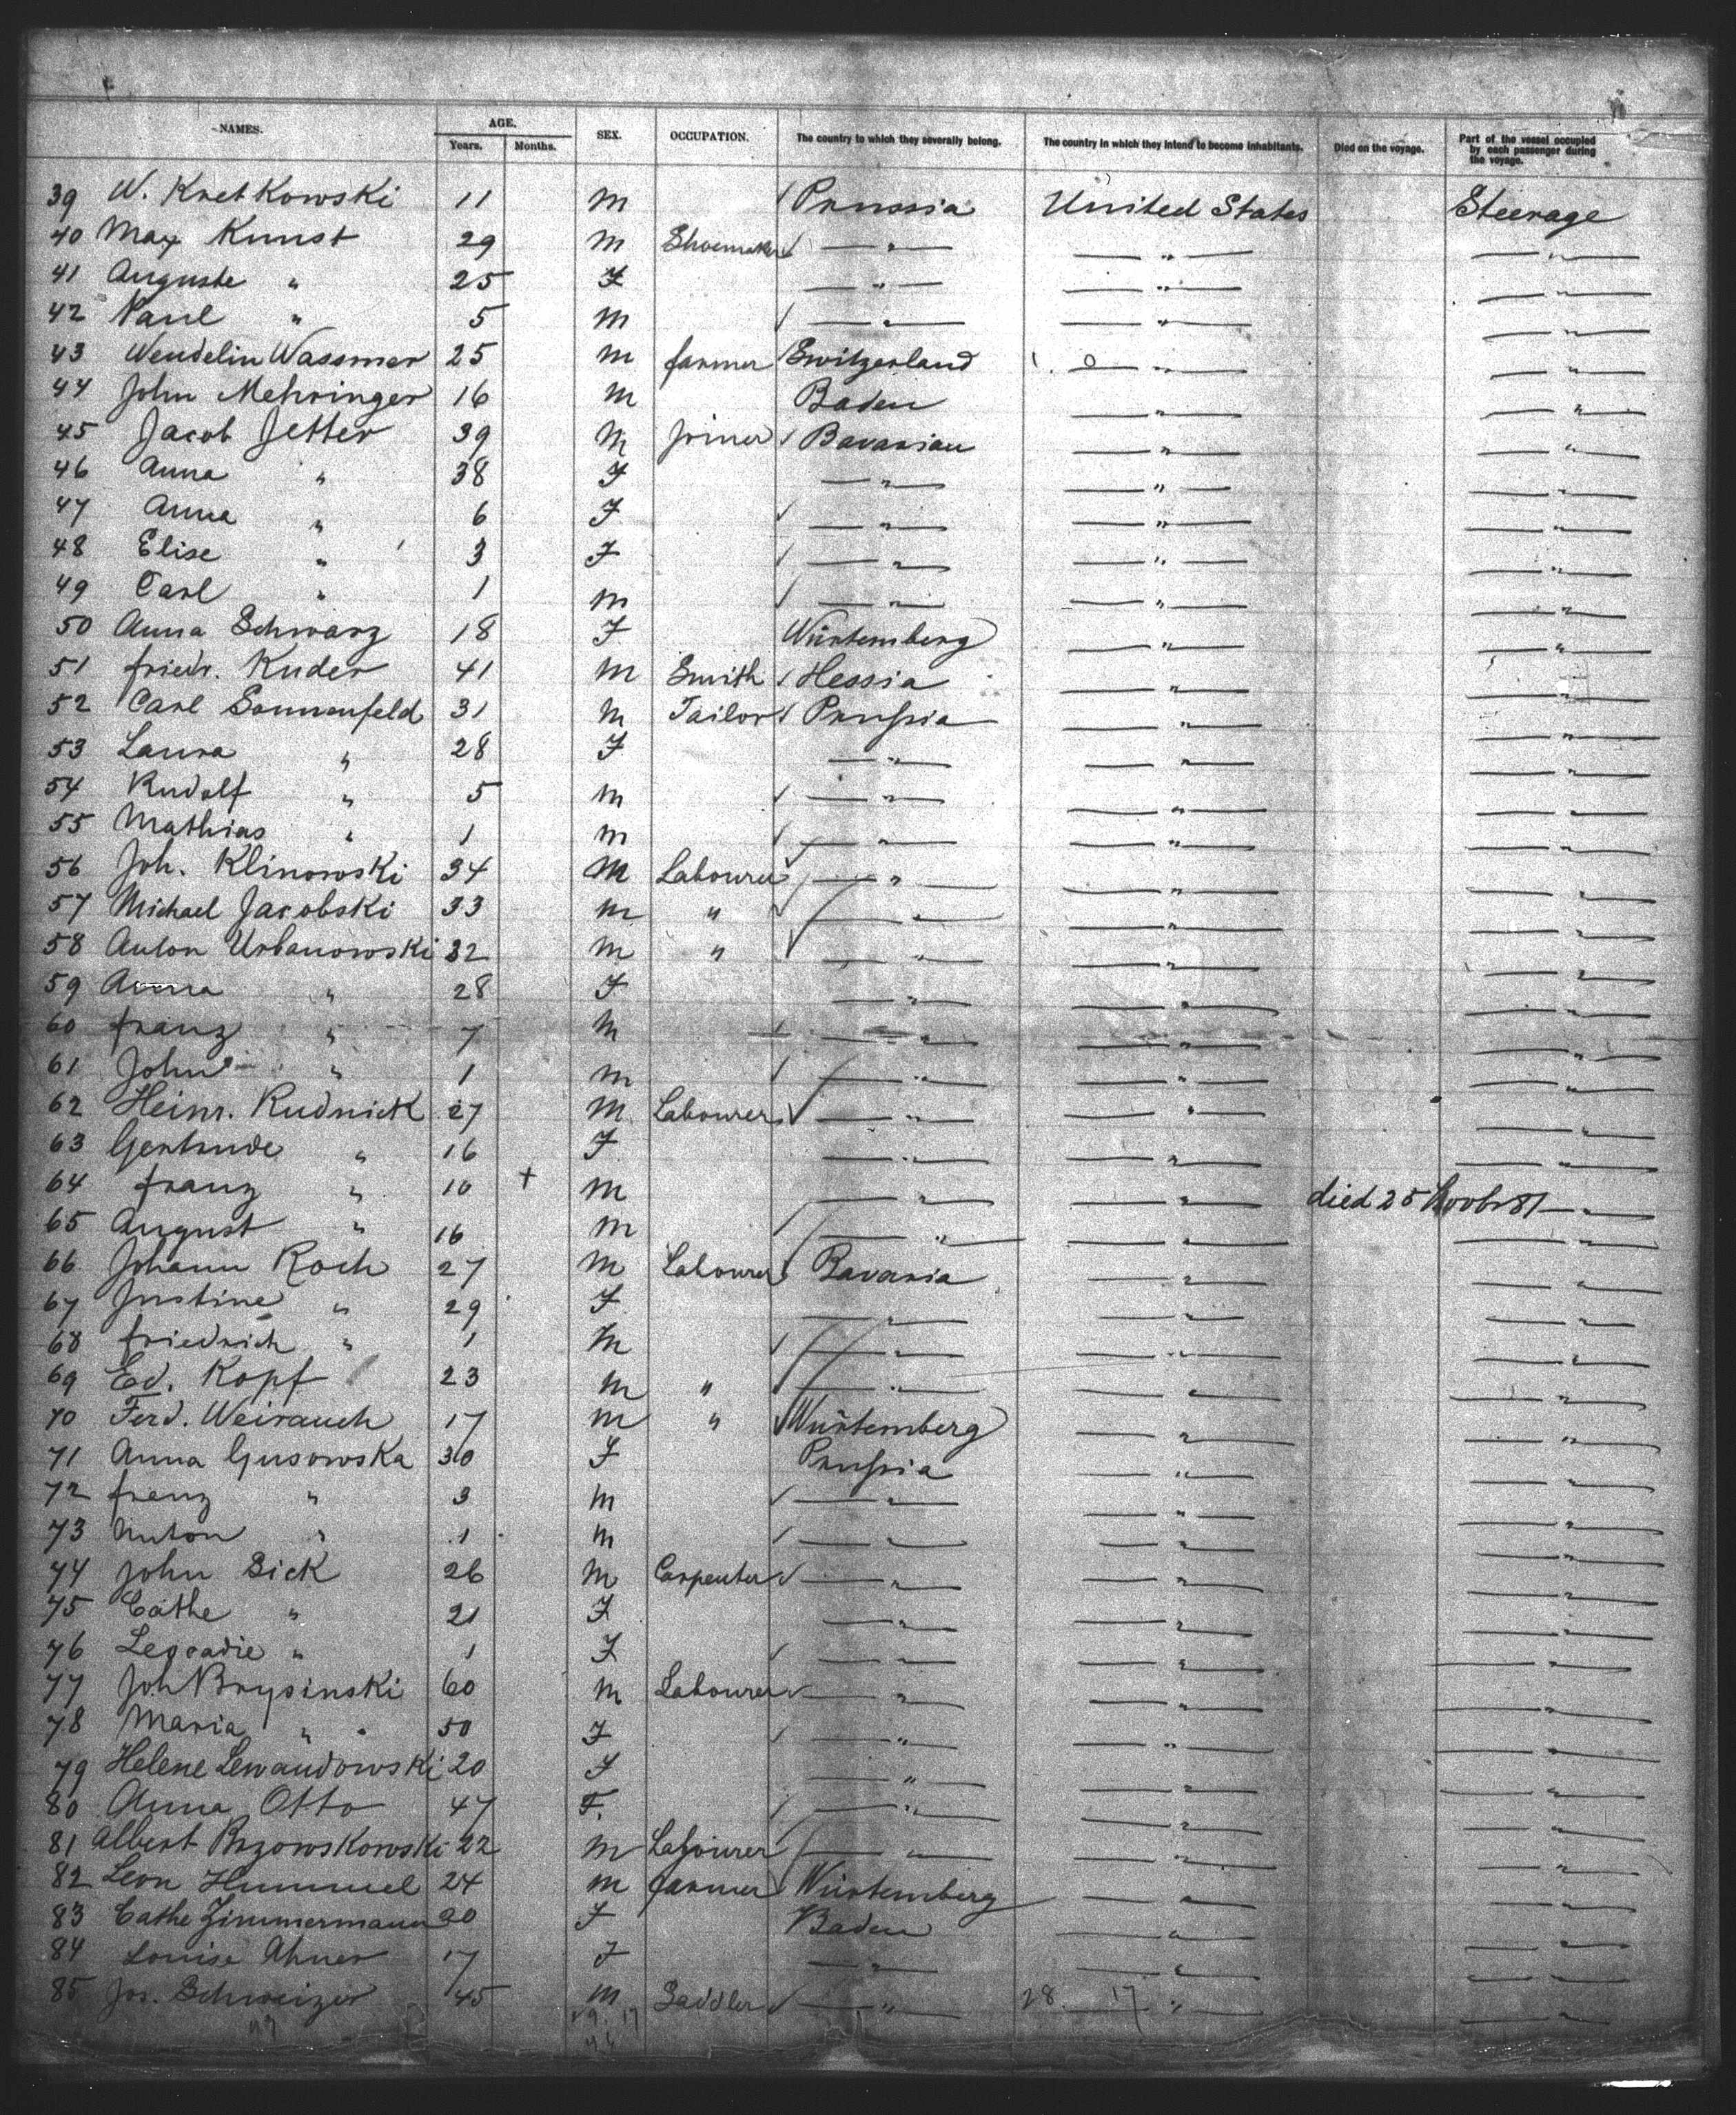 NAMES. AGE. SEX. OCCUPATION. The country to which they severally belong. The country in which they intend to become inhabitants. Died on the voyage. Part of the vessel occupied by each passenger during the voyage.
Years. Months.
39 W. Kretkowski 11 M Prussia United States Steerage
40 Max Kunst 29 M Shoemaker " " "
41 Auguste " 25 F " " "
42 Paul " 5 M " " "
43 Wendelin Wassmer 25 M farmer Switzerland " "
44 John Mehringer 16 M Baden " "
45 Jacob Jetter 39 M Joiner Bavarian " "
46 Anna " 38 F " " "
47 Anna " 6 F " " "
48 Elise " 3 F " " "
49 Carl " 1 M " " "
50 Anna Schwarz 18 F Würtemberg " "
51 friedr. Kuder 41 M Smith Hessia " "
52 Carl Sonnenfeld 31 M Tailor Prussia " "
53 Laura " 28 F " " "
54 Rudolf " 5 M " " "
55 Mathias " 1 M " " "
56 Joh. Klinowski 34 M Labourer " " "
57 Michael Jacobski 33 M " " " "
58 Anton Urbanowski 32 M " " " "
59 Anna " 28 F " " "
60 franz " 7 M " " "
61 John " 1 M " " "
62 Heinr. Rudnick 27 M Labourer " " "
63 Gertrude " 16 F " " "
64 franz " 10 + M " " died 25 Novbr 81 "
65 August " 16 M " " "
66 Johann Roch 27 M Labourer Bavaria " "
67 Justine " 29 F " " "
68 friedrich " 1 M " " "
69 Ed. Kopf 23 M " " " "
70 Ferd. Weirauch 17 M " Würtemberg " "
71 Anna Gusowska 30 F Prussia " "
72 franz " 3 M " " "
73 Anton " 1 M " " "
74 John Sick 26 M Carpenter " " "
75 Cathe " 21 F " " "
76 Leocadie " 1 F " " "
77 Joh Brysinski 60 M Labourer " " "
78 Maria " 50 F " " "
79 Helene Lewandowski 20 F " " "
80 Anna Otto 47 F. " " "
81 Albert Brzowskowski 22 M Labourer " " "
82 Leon Hummel 24 M farmer Würtemberg " "
83 Cathe Zimmermann 20 F Baden " "
84 Louise Ahner 17 F " " "
85 Jos. Schweizer 45 M Saddler " 28 17 " "